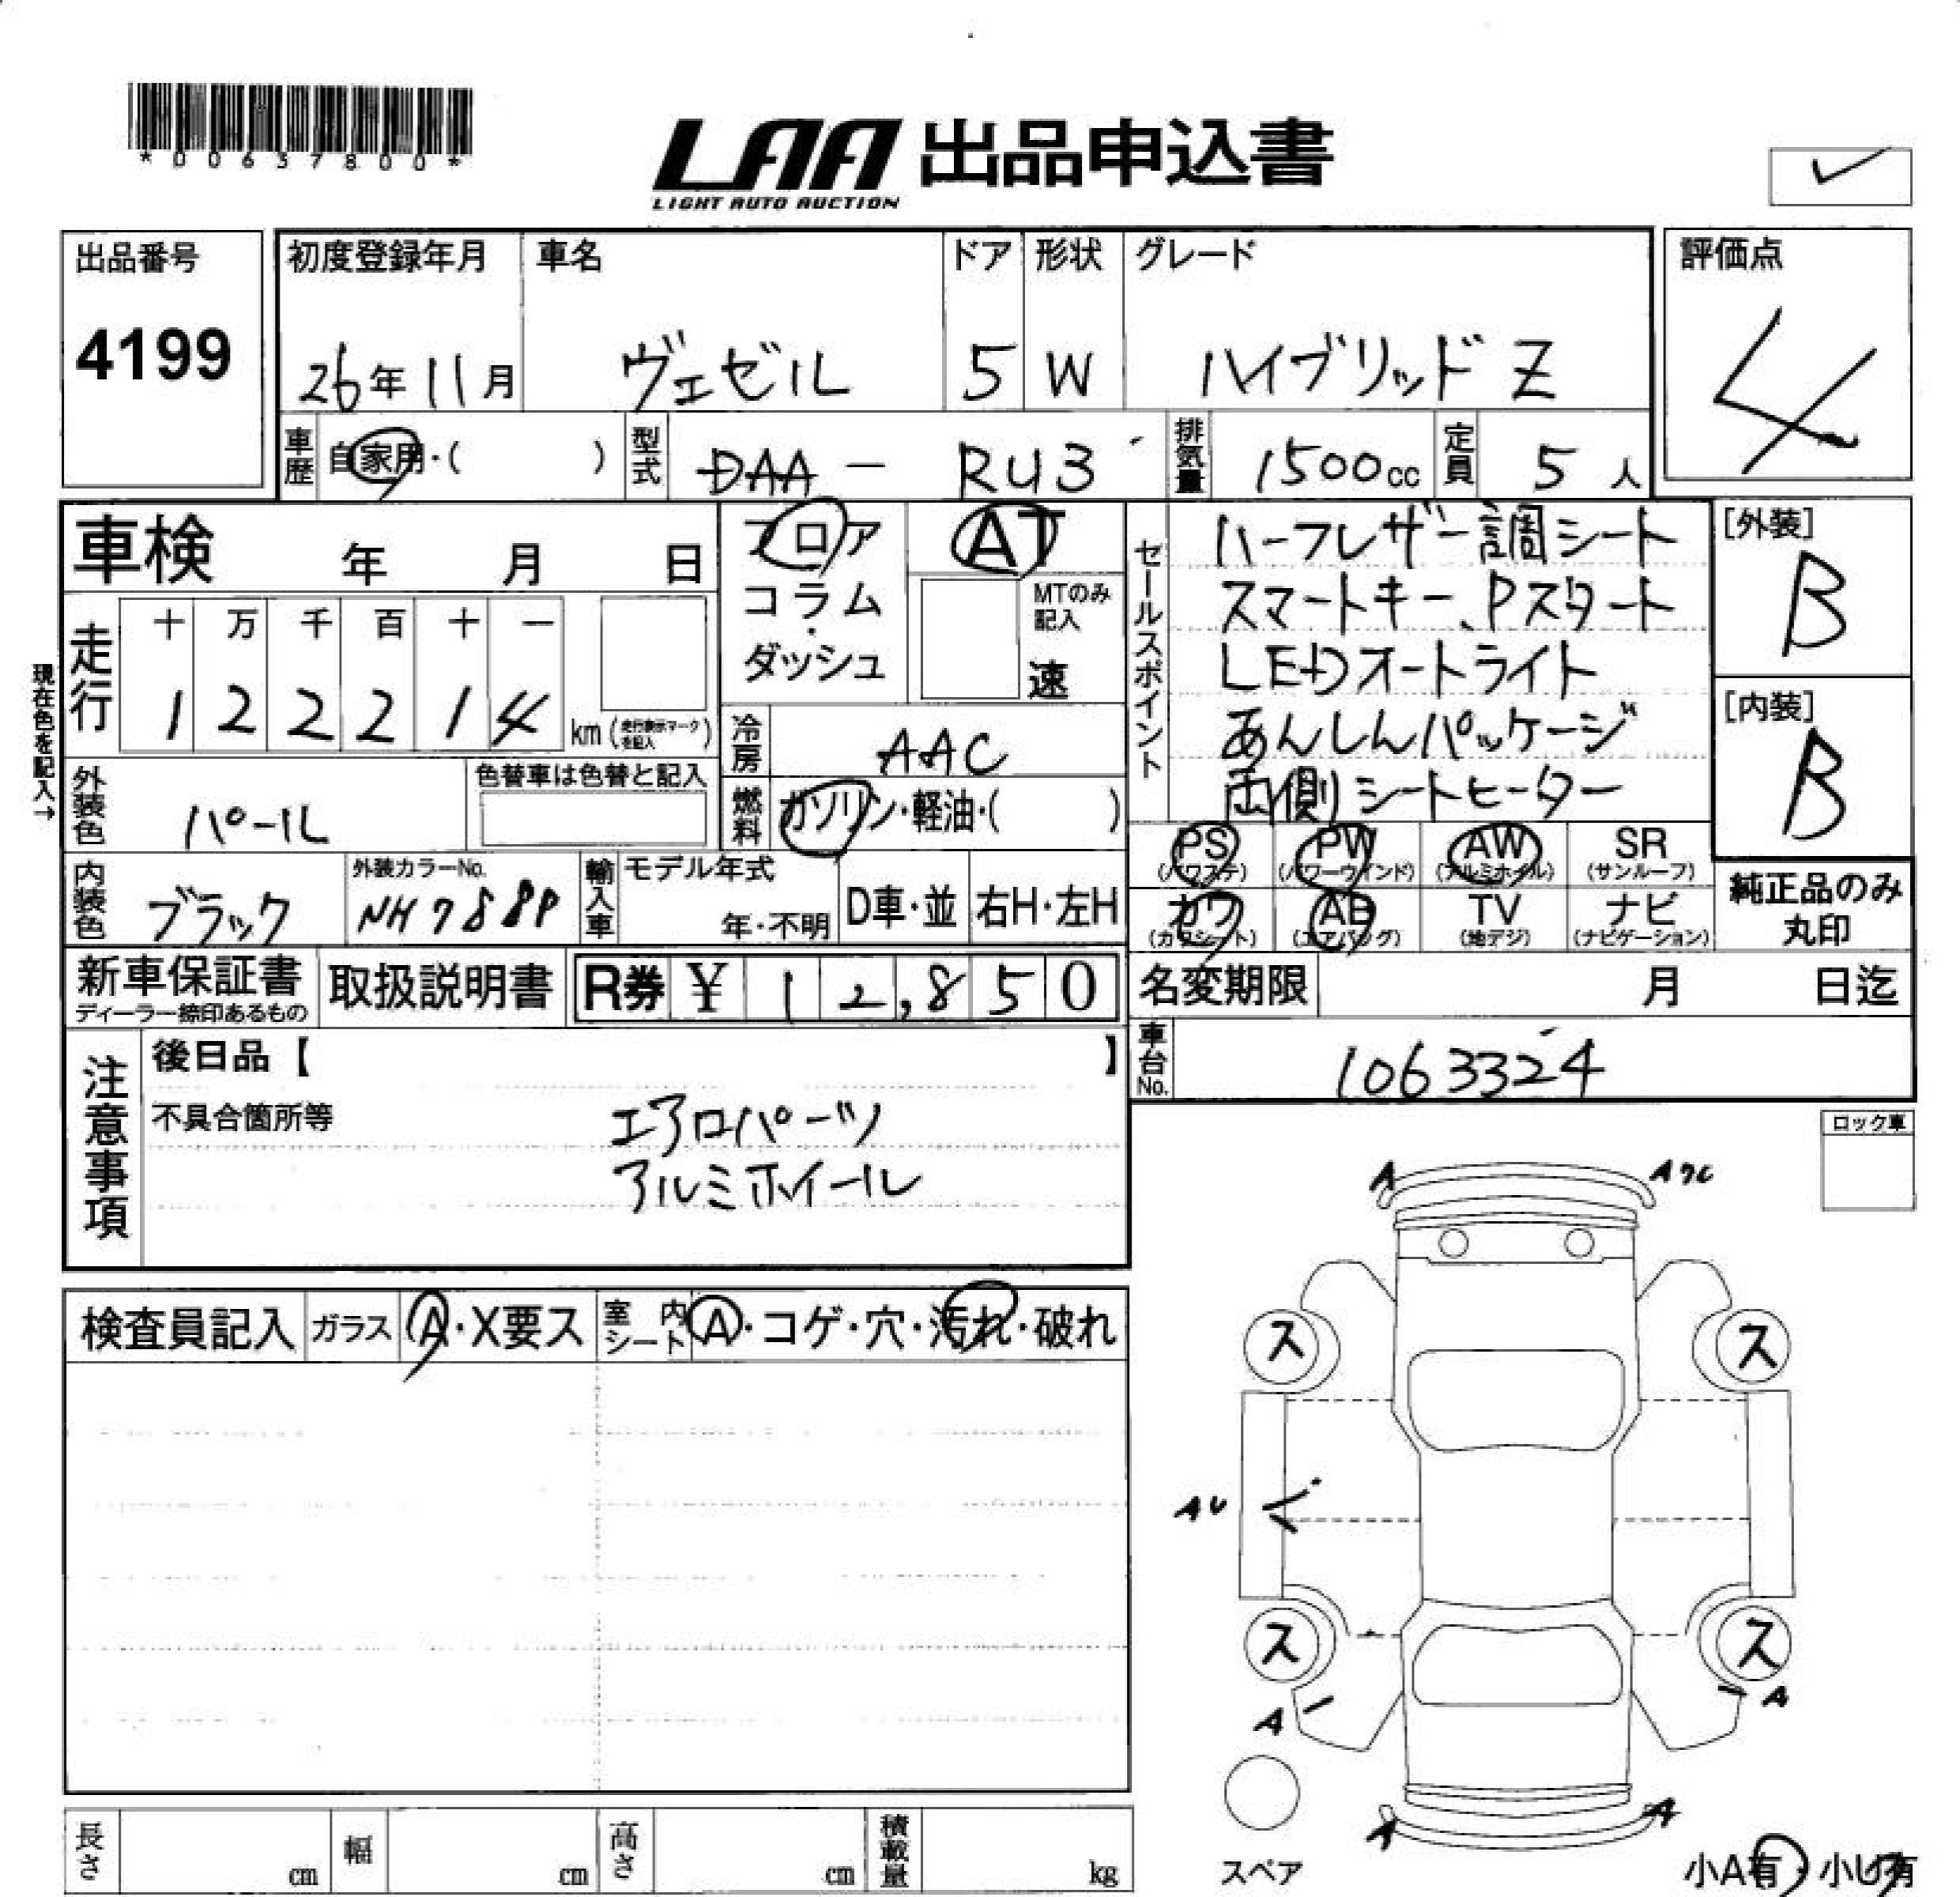 *00637800*
LAA 出品申込書
LIGHT AUTO AUCTION
出品番号 初度登録年月 車名 ドア 形状 グレード 評価点
4199 26年11月 ヴェゼル 5 W ハイブリッド Z 4
車歴 自家用・( ) 型式 DAA - RU3 排気量 1500cc 定員 5人
車検 年 月 日
フロア
コラム
・
ダッシュ
AT
MTのみ記入
速
セールスポイント
ハーフレザー調シート
スマートキー、Pスタート
LEDオートライト
あんしんパッケージ
両側シートヒーター
[外装]
B
[内装]
B
現在色を記入→
走行 十 万 千 百 十 一
1 2 2 2 1 4 km (走行表示マークを記入)
冷房 AAC
燃料 ガソリン・軽油・( )
外装色 パール 色替車は色替と記入
PS (パワステ) PW (パワーウインド) AW (アルミホイル) SR (サンルーフ)
カワ (カワシート) AB (エアバッグ) TV (地デジ) ナビ (ナビゲーション)
純正品のみ
丸印
内装色 ブラック 外装カラーNo. NH788P 輸入車 モデル年式 年・不明 D車・並 右H・左H
新車保証書 ディーラー捺印あるもの 取扱説明書 R券 ¥ 12,850 名変期限 月 日迄
車台No. 1063324
注意事項
後日品【 】
不具合箇所等
エアロパーツ
アルミホイール
ロック車
検査員記入 ガラス A・X要ス 室内シート A・コゲ・穴・汚れ・破れ
A A
ス ス
AU
ス ス
A A
A A
スペア
小A有・小U有
長さ cm 幅 cm 高さ cm 積載量 kg